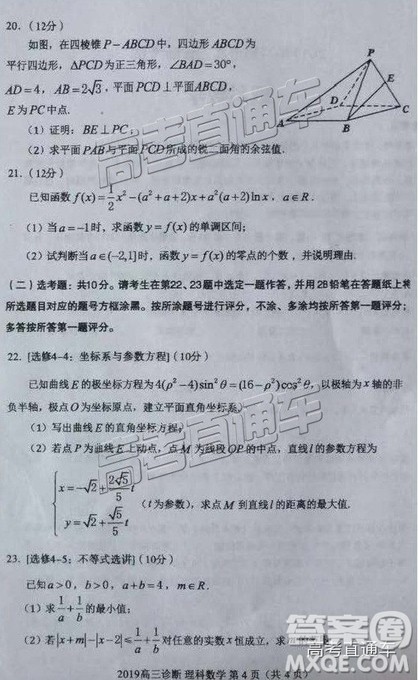 20.（12分）
如图，在四棱锥P－ABCD中，四边形ABCD为
平行四边形，△PCD为正三角形，∠BAD＝30°，
AD＝4，AB＝2√3，平面PCD⊥平面ABCD，
E为PC中点.
（1）证明：BE⊥PC；
（2）求平面PAB与平面PCD所成的锐二面角的余弦值.
P
E
D
C
A
B
21.（12分）
已知函数f(x)＝1/2x²－(a²＋a＋2)x＋a²(a＋2)ln x，a∈R.
（1）当a＝－1时，求函数y＝f(x)的单调区间；
（2）试判断当a∈(-2,1]时，函数y＝f(x)的零点的个数，并说明理由.
（二）选考题：共10分。请考生在第22、23题中选定一题作答，并用2B铅笔在答题纸上将
所选题目对应的题号方框涂黑。按所涂题号进行评分，不涂、多涂均按所答第一题评分。
多答按所答第一题评分。
22.[选修4-4：坐标系与参数方程]（10分）
已知曲线E的极坐标方程为4(ρ²－4)sin²θ＝(16－ρ²)cos²θ，以极轴为x轴的非
负半轴，极点O为坐标原点，建立平面直角坐标系.
（1）写出曲线E的直角坐标方程；
（2）若点P为曲线E上动点，点M为线段OP的中点，直线l的参数方程为
x＝－√2＋2√5/5 t
y＝√2＋√5/5 t
（t为参数），求点M到直线l的距离的最大值.
23.[选修4-5：不等式选讲]（10分）
已知a＞0，b＞0，a＋b＝4，m∈R.
（1）求1/a＋1/b的最小值；
（2）若|x＋m|－|x－2|≤1/a＋1/b对任意的实数x恒成立，求
2019高三诊断 理科数学 第4页（共4页）
高考直通车
答案圈
高考直通车